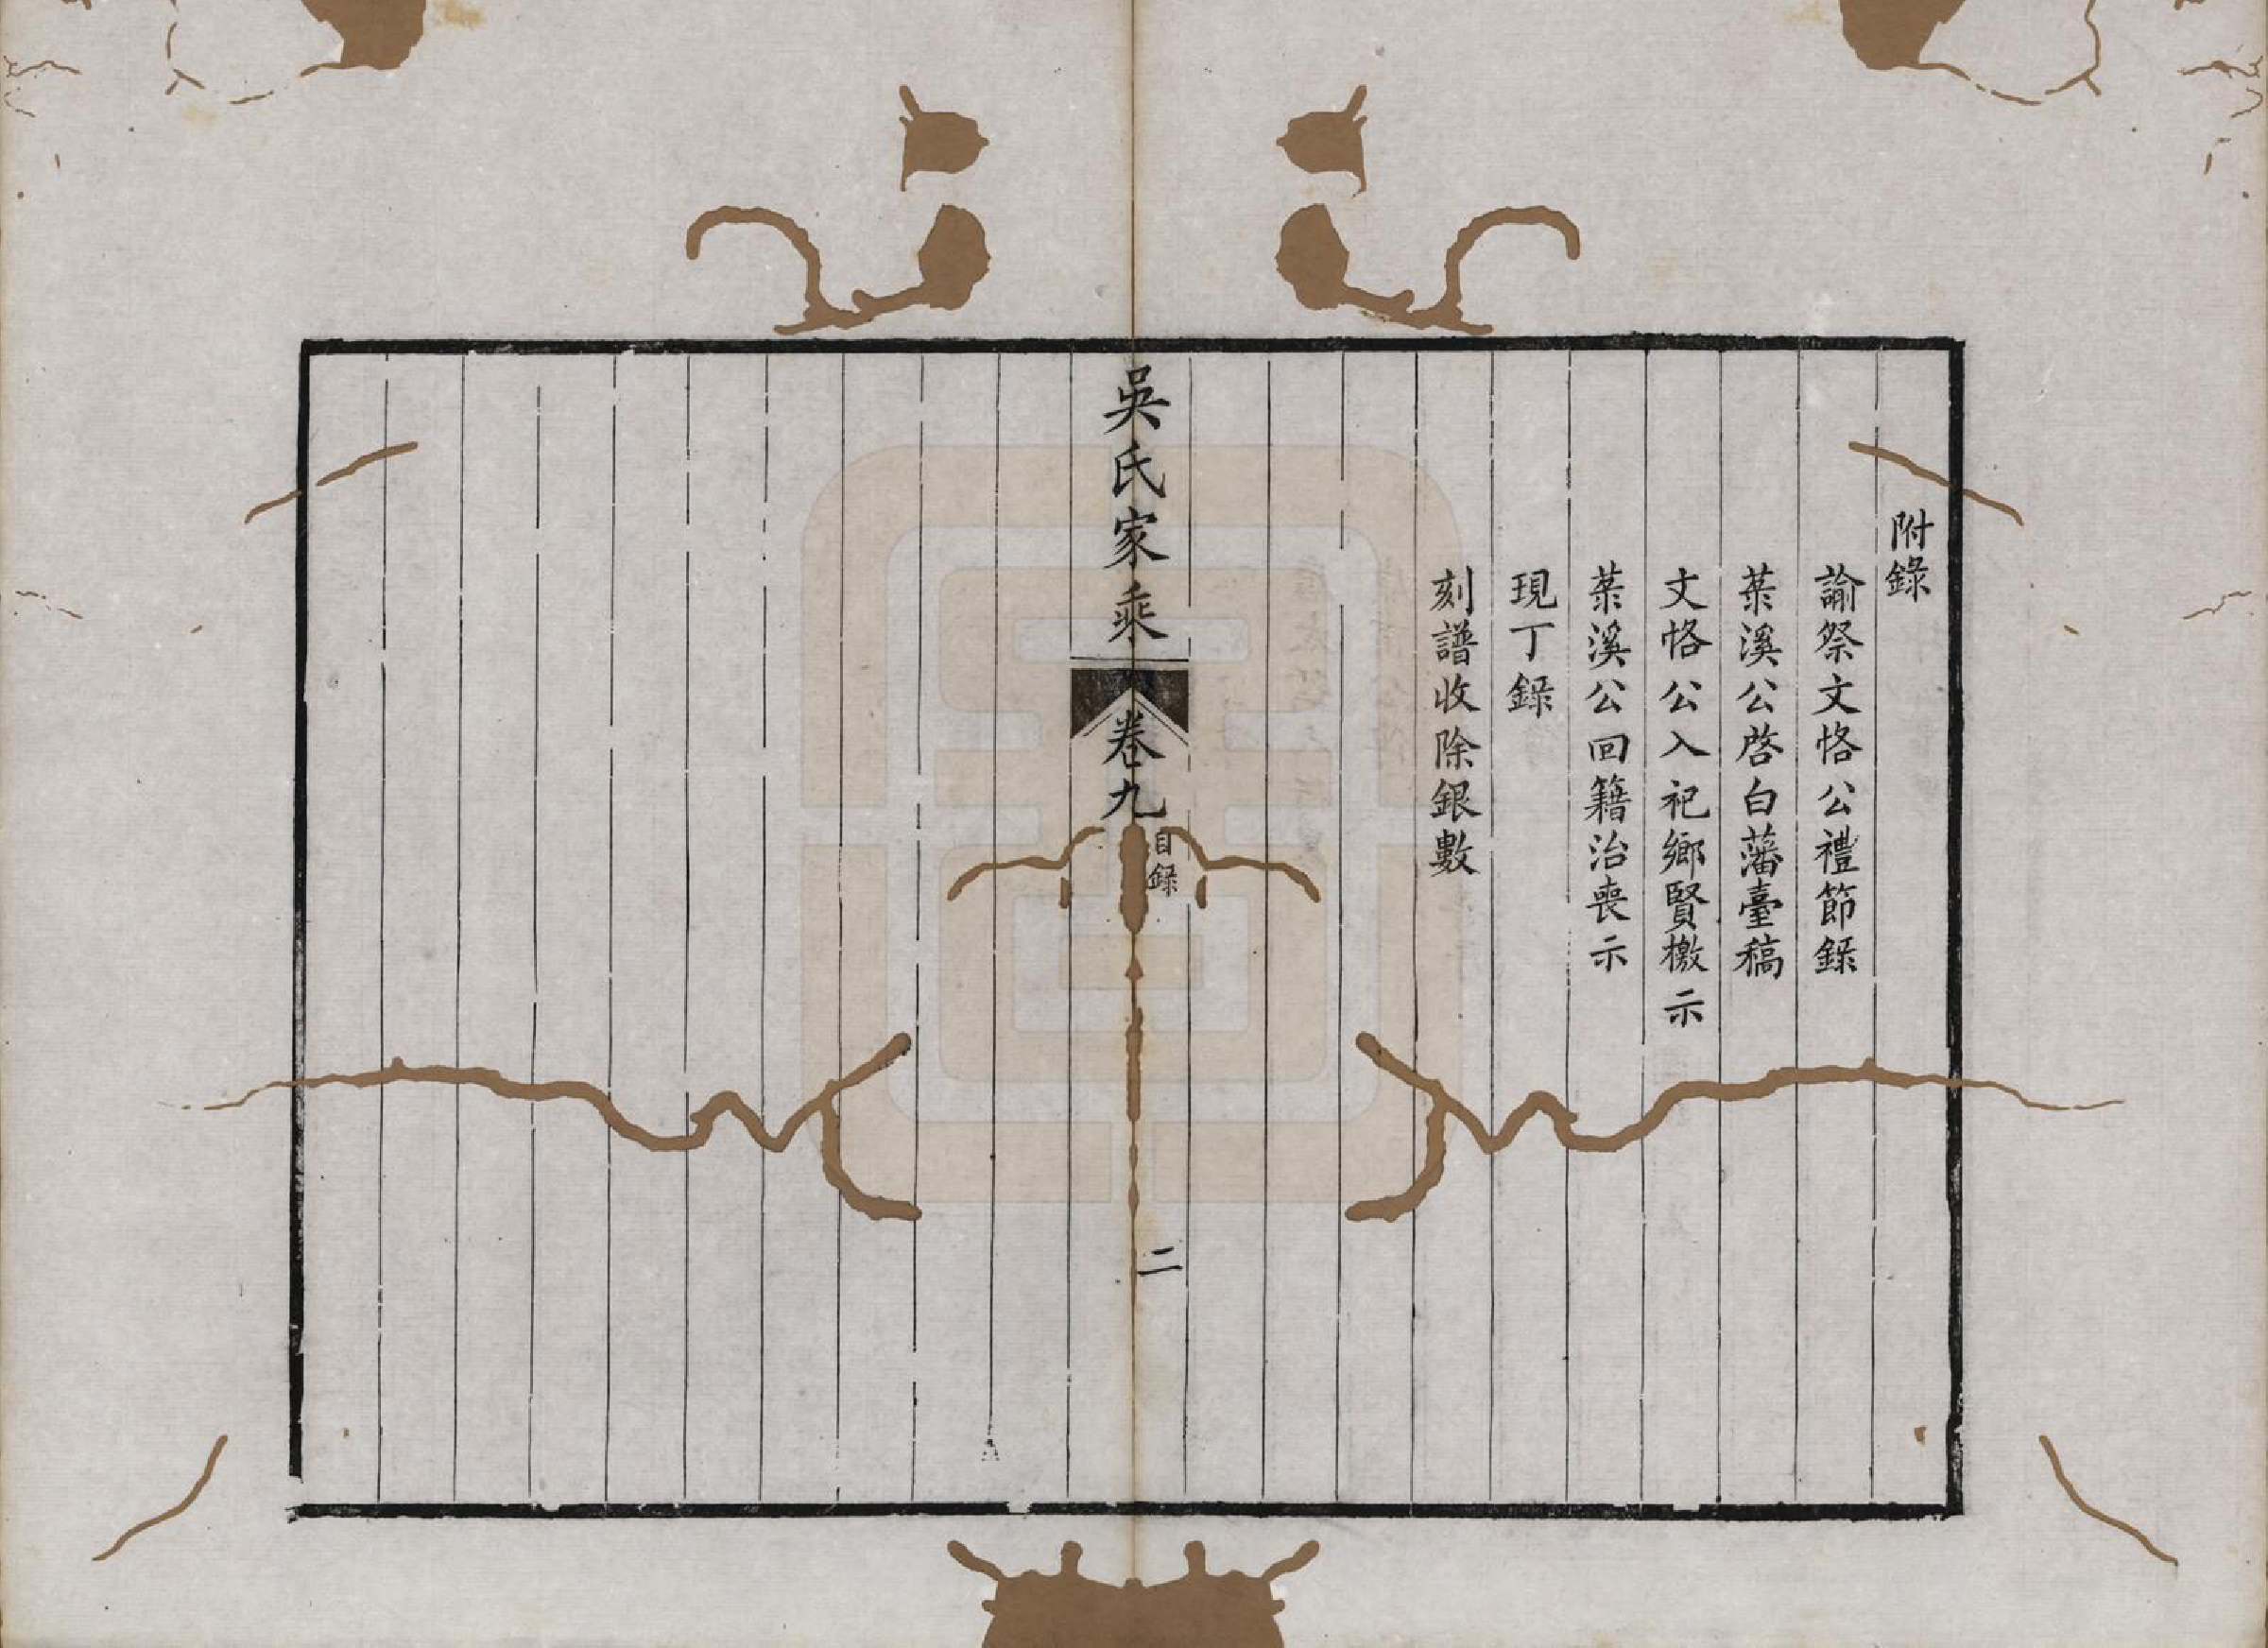 附錄
諭祭文恪公禮節錄
葉溪公啓白藩臺稿
文恪公入祀鄉賢檄示
葉溪公回籍治喪示
現丁錄
刻譜收除銀數
吳氏家乘
卷九
目錄
二